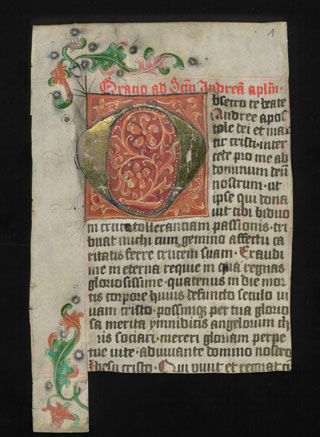 1
Oracio ad Sctm Andreã aplm.
Obsecro te beate
Andree apos
tole dei et mar
tir cristi. inter
cede pro me ad
dominum deum
nostrum. ut
ipse qui dona
uit tibi diuino
in cruce tollerandam passionis. tri
buat michi cum gemino affectu ca
ritatis ferre crucem suam. Exaudi
me in eterna requie in qua regnas
gloriosissime. quatenus in die mor
tis corpore huius defuncto seculo ui
uam cristo. possimque per tua glorio
sa merita ymnidicis angelorum cho
ris sociari. mereri gloriam perpe
tue uite. adiuuante domino nostro
Ihesu cristo. Qui uiuit et regnat